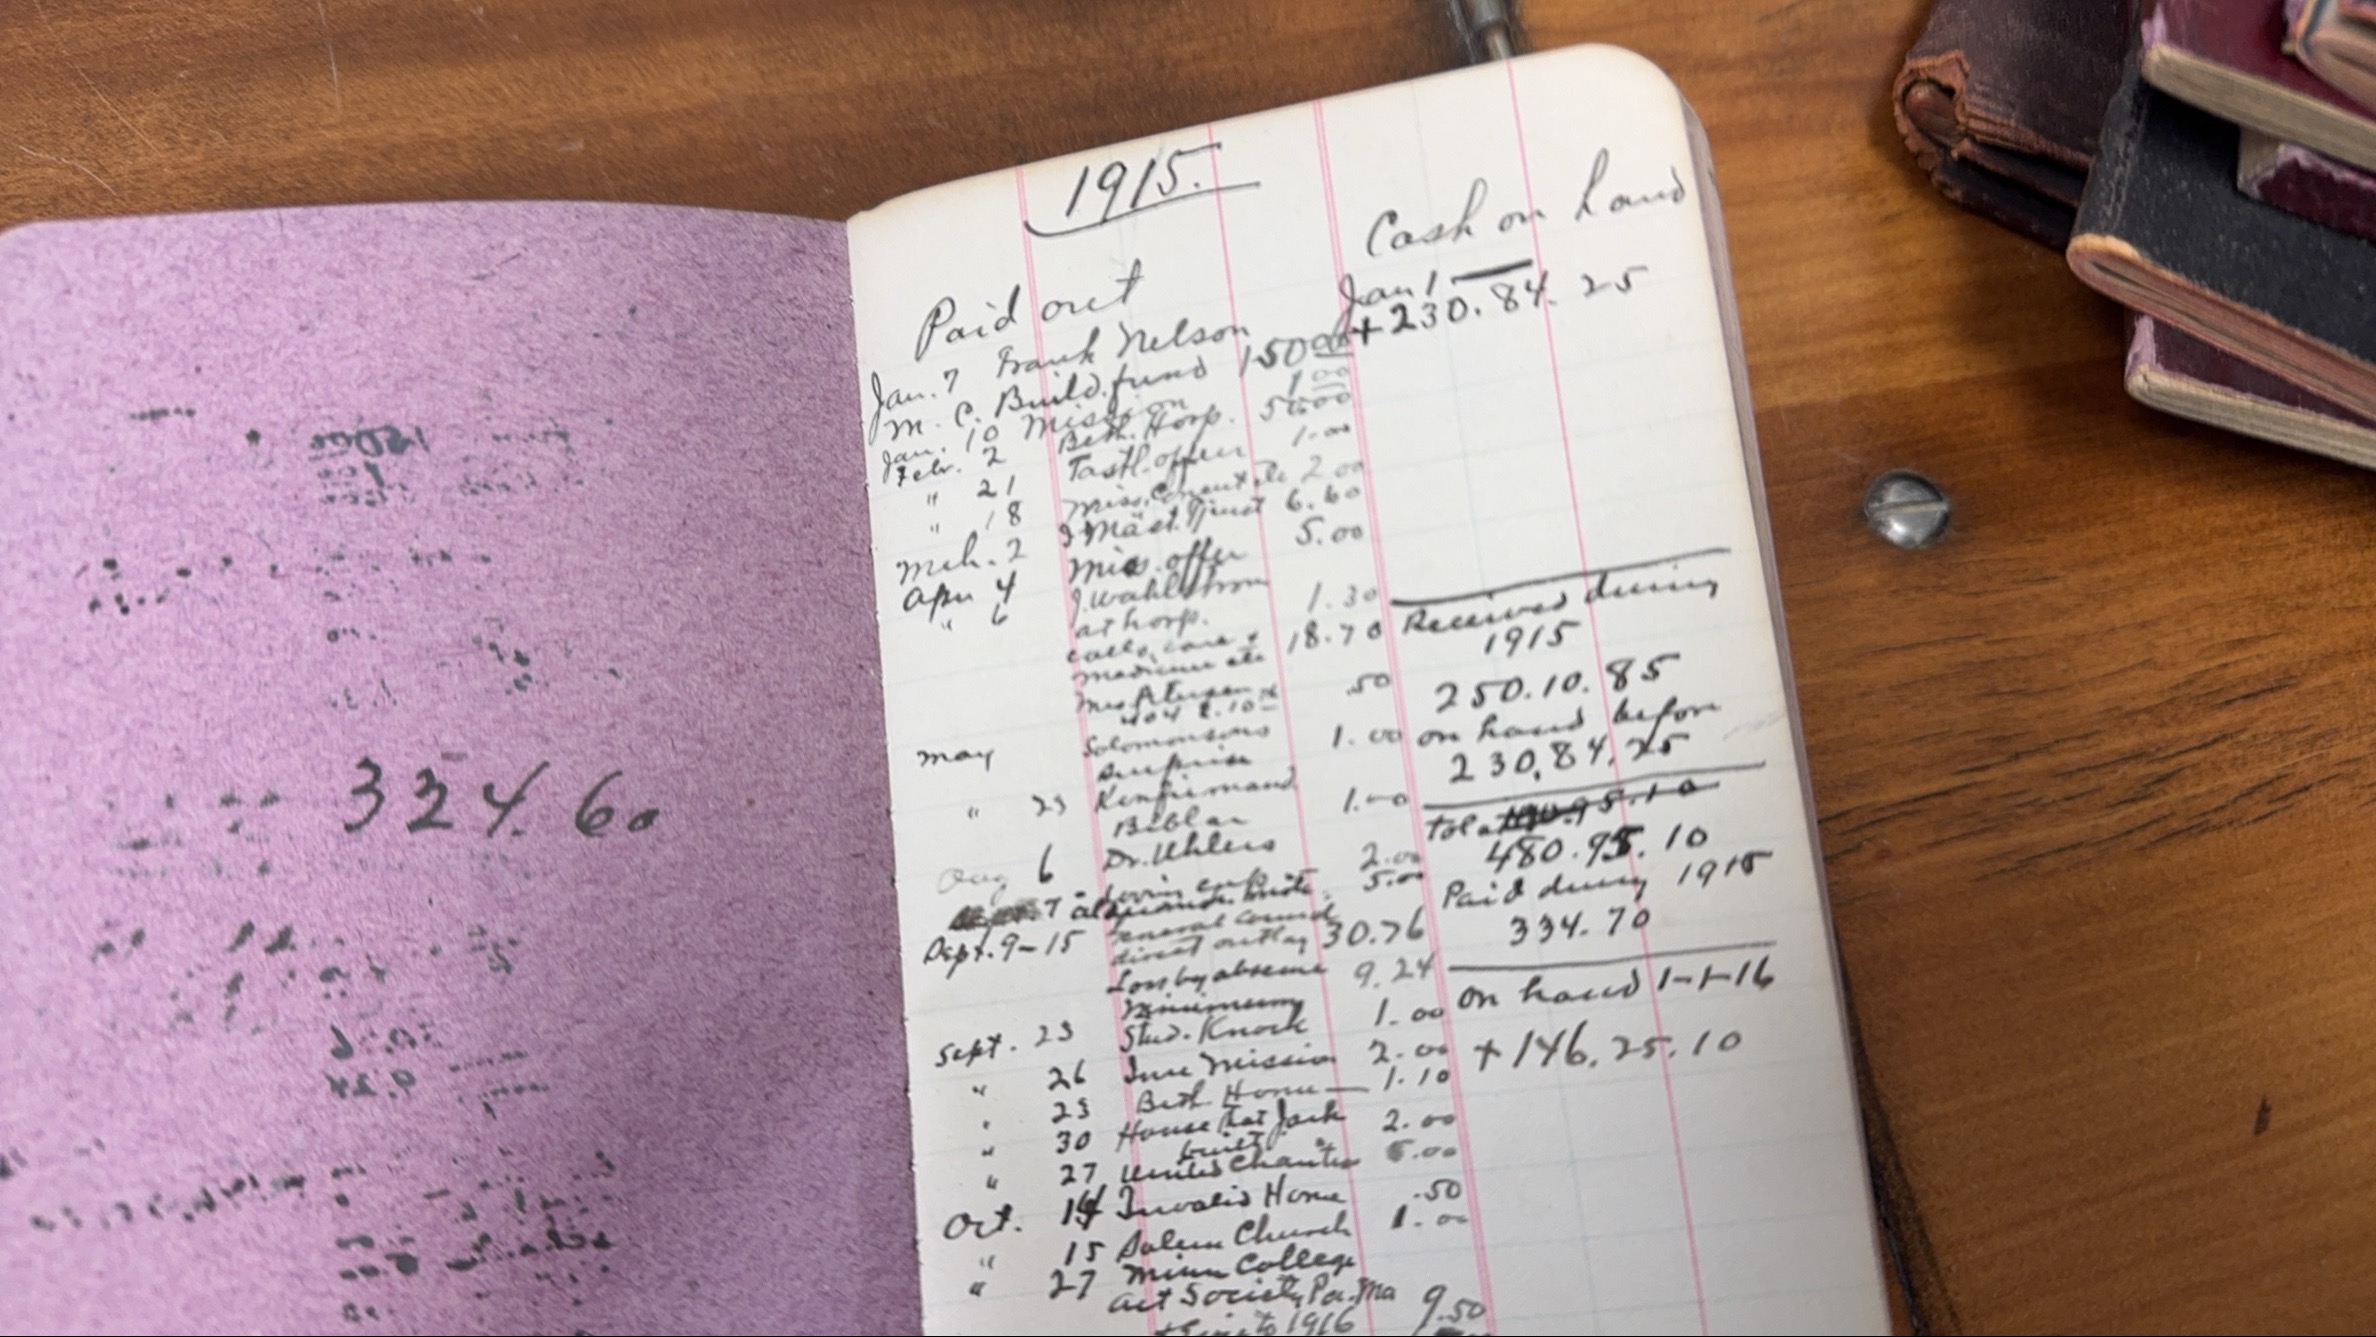 324.60
1915.
Paid out
Jan. 7 Frank Nelson
M. C. Build. fund 150.00
Jan. 10 Mission 1.00
Febr. 2 Beth. Hosp. 50.00
" 21 Fastl. offer 1.00
" 18 Miss. 2.00
Mch. 2 6.60
Apr. 4 Miss. offer 5.00
" 6 J. Wahlstrom
at hosp. 1.30
calls, care &
medicine etc 18.70
Mrs Petersen .50
May Solomonsons
surprise 1.00
" 23 Konfirmand
Biblar 1.00
Aug 6 Dr. Uhlers
2.00
7 5.00
Sept. 9-15 General
direct outlay 30.76
Loss by absence 9.24
Sept. 23 Stud. Knock 1.00
" 26 Inre Mission 2.00
" 23 Beth. Home — 1.10
" 30 House that Jack
built 2.00
" 27 United Charities 5.00
Oct. 14 Invalid Home .50
" 15 Salem Church 1.00
" 27 Minn College
Art Society
to 1916 9.50
Cash on hand
Jan 1
+230.84.25
Received during
1915
250.10.85
on hand before
230.84.25
Total
480.95.10
Paid during 1915
334.70
On hand 1-1-16
+146.25.10